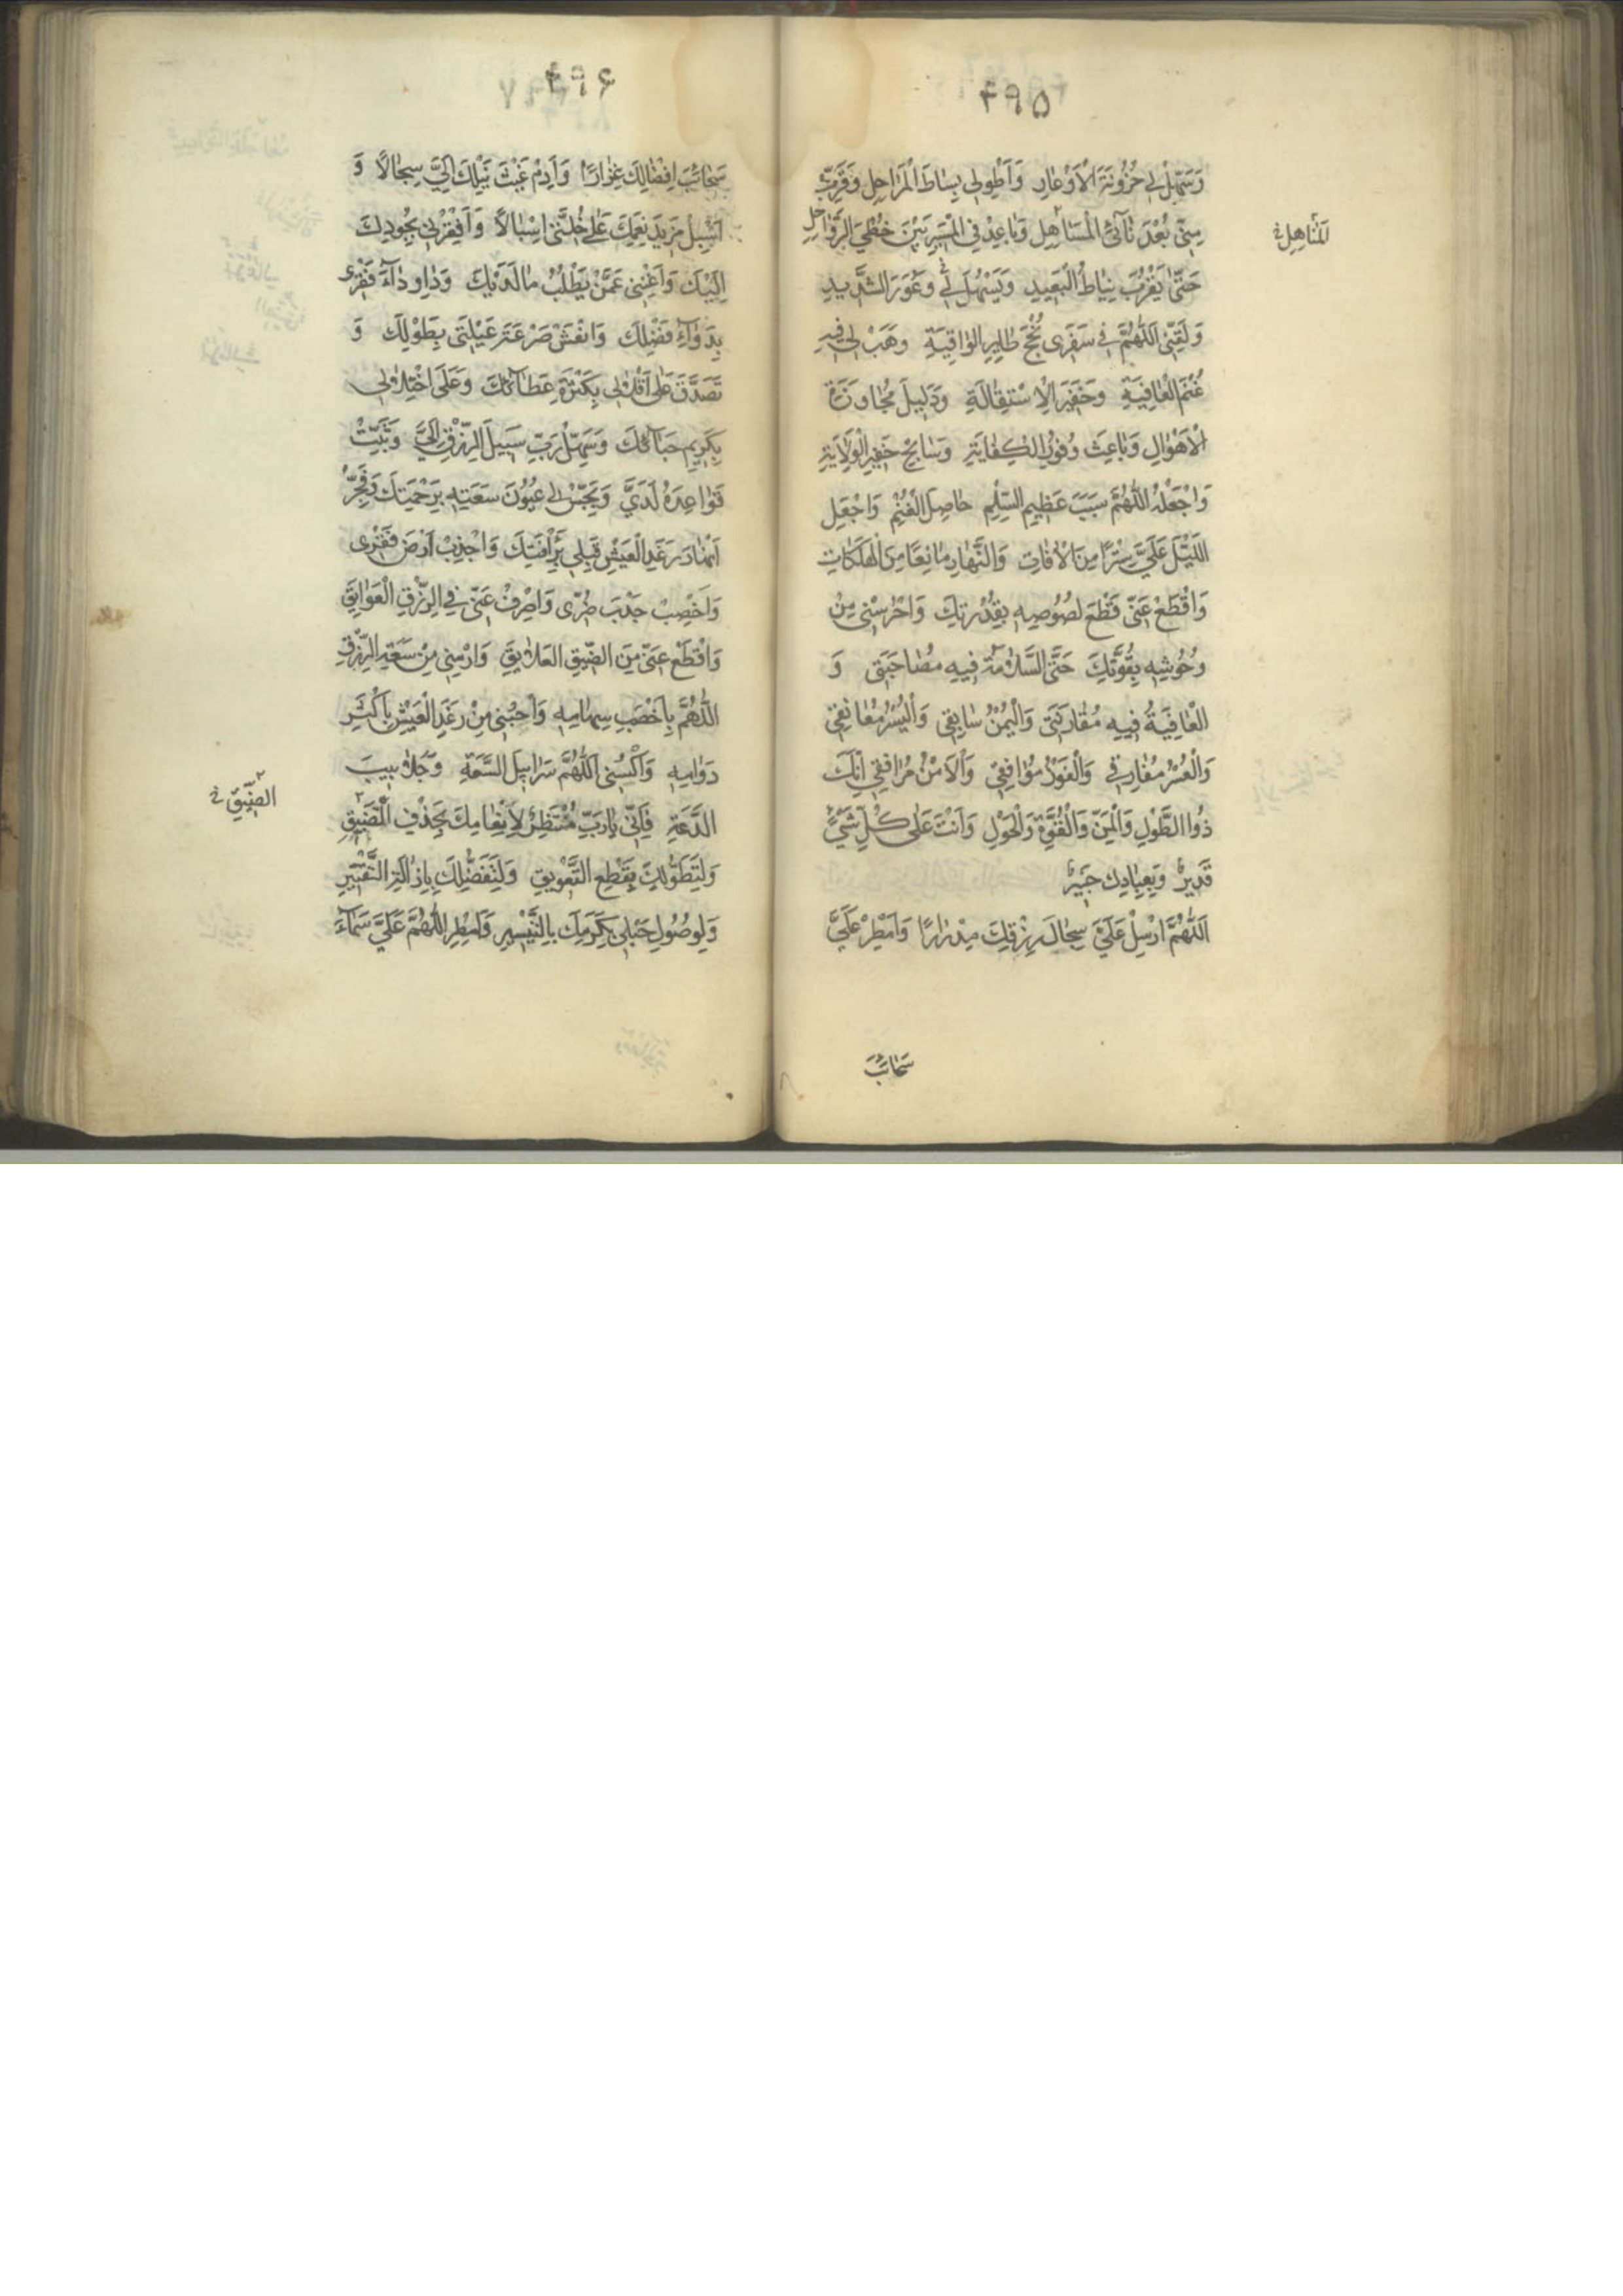 ۴۹۵
وَسَهِّلْ لِي حُزُونَةَ الْأَوْعَارِ وَاَطْوِ لِي بِسَاطَ الْمَرَاحِلِ وَقَرِّبْ
مِنِّي بُعْدَ نَأْيِ الْمَسَاهِلِ وَبَاعِدْ فِي الْمَسِيرِ بَيْنَ خُطَى الرَّوَاحِلِ
المَنَاهِلِ
حَتَّى يَقْرُبَ نِيَاطُ الْبَعِيدِ وَيَسْهُلَ لِي وَعُورَ الشَّدِيدِ
وَلَقِّنِي اللَّهُمَّ فِي سَفَرِي نُجْحَ طَايِرِ الْوَاقِيَةِ وَهَبْ لِي فِيهِ
غُنْمَ الْعَافِيَةِ وَخَفِيرَ الْإِسْتِقَالَةِ وَدَلِيلَ مُجَاوَزَةِ
الْأَهْوَالِ وَبَاعِثَ وُفُورِ الْكِفَايَةِ وَسَايِحَ خَفِيرِ الْوِلَايَةِ
وَاجْعَلْهُ اللَّهُمَّ سَبَبَ عَظِيمِ السِّلْمِ حَاصِلَ الْغُنْمِ وَاجْعَلِ
اللَّيْلَ عَلَيَّ سِتْرًا مِنَ الْآفَاتِ وَالنَّهَارَ مَانِعًا مِنَ الْهَلَكَاتِ
وَاقْطَعْ عَنِّي قَطْعَ لُصُوصِهِ بِقُدْرَتِكَ وَاحْرُسْنِي مِنْ
وُحُوشِهِ بِقُوَّتِكَ حَتَّى السَّلَامَةُ فِيهِ مُصَاحِبَتِي وَ
الْعَافِيَةُ فِيهِ مُقَارِنَتِي وَالْيُمْنُ سَايِقِي وَالْيُسْرُ مُعَانِقِي
وَالْعُسْرُ مُفَارِقِي وَالْفَوْزُ مُوَافِقِي وَالْأَمْنُ مُرَافِقِي اِنَّكَ
ذُو الطَّوْلِ وَالْمَنِّ وَالْقُوَّةِ وَالْحَوْلِ وَاَنْتَ عَلَى كُلِّ شَيْءٍ
قَدِيرٌ وَبِعِبَادِكَ خَبِيرٌ
اَللَّهُمَّ اَرْسِلْ عَلَيَّ سِجَالَ رِزْقِكَ مِدْرَارًا وَاَمْطِرْ عَلَيَّ
سَحَائِبَ
۴۹۶
سَحَائِبَ اِفْضَالِكَ غِزَارًا وَاَدِمْ غَيْثَ نَيْلِكَ اِلَيَّ سِجَالًا وَ
اَسْبِلْ مَزِيدَ نِعَمِكَ عَلَى خَلَّتِي اِسْبَالًا وَاَفْقِرْنِي بِجُودِكَ
اِلَيْكَ وَاَغْنِنِي عَمَّنْ يَطْلُبُ مَا لَدَيْكَ وَدَاوِ دَاءَ فَقْرِي
بِدَوَاءِ فَضْلِكَ وَانْعَشْ صَرْعَةَ عَيْلَتِي بِطَوْلِكَ وَ
تَصَدَّقْ عَلَى اَقْلَالِي بِكَثْرَةِ عَطَائِكَ وَعَلَى اخْتِلَالِي
بِكَرِيمِ حَبَائِكَ وَسَهِّلْ رَبِّ سَبِيلَ الرِّزْقِ اِلَيَّ وَثَبِّتْ
قَوَاعِدَهُ لَدَيَّ وَبَجِّسْ لِي عُيُونَ سَعَتِهِ بِرَحْمَتِكَ وَفَجِّرْ
اَنْهَارَ رَغَدِ الْعَيْشِ قِبَلِي بِرَأْفَتِكَ وَاَجْدِبْ اَرْضَ فَقْرِي
وَاَخْصِبْ جَدْبَ ضُرِّي وَاصْرِفْ عَنِّي فِي الرِّزْقِ الْعَوَايِقَ
وَاقْطَعْ عَنِّي مِنَ الضِّيقِ الْعَلَايِقَ وَارْمِنِي مِنْ سَعَةِ الرِّزْقِ
اللَّهُمَّ بِاَخْصَبِ سِهَامِهِ وَاحْبُنِي مِنْ رَغَدِ الْعَيْشِ بِاَكْثَرِ
دَوَامِهِ وَاكْسُنِي اللَّهُمَّ سَرَابِيلَ السَّعَةِ وَجَلَابِيبَ
الدَّعَةِ فَاِنِّي يَا رَبِّ مُنْتَظِرٌ لِاِنْعَامِكَ بِحَذْفِ الْمَضِيقِ
الضِّيقِ
وَلِتَطَوُّلِكَ بِقَطْعِ التَّعْوِيقِ وَلِتَفَضُّلِكَ بِاِزَالَةِ التَّقْتِيرِ
وَلِوُصُولِ حَبْلِي بِكَرَمِكَ بِالتَّيْسِيرِ وَاَمْطِرِ اللَّهُمَّ عَلَيَّ سَمَاءَ